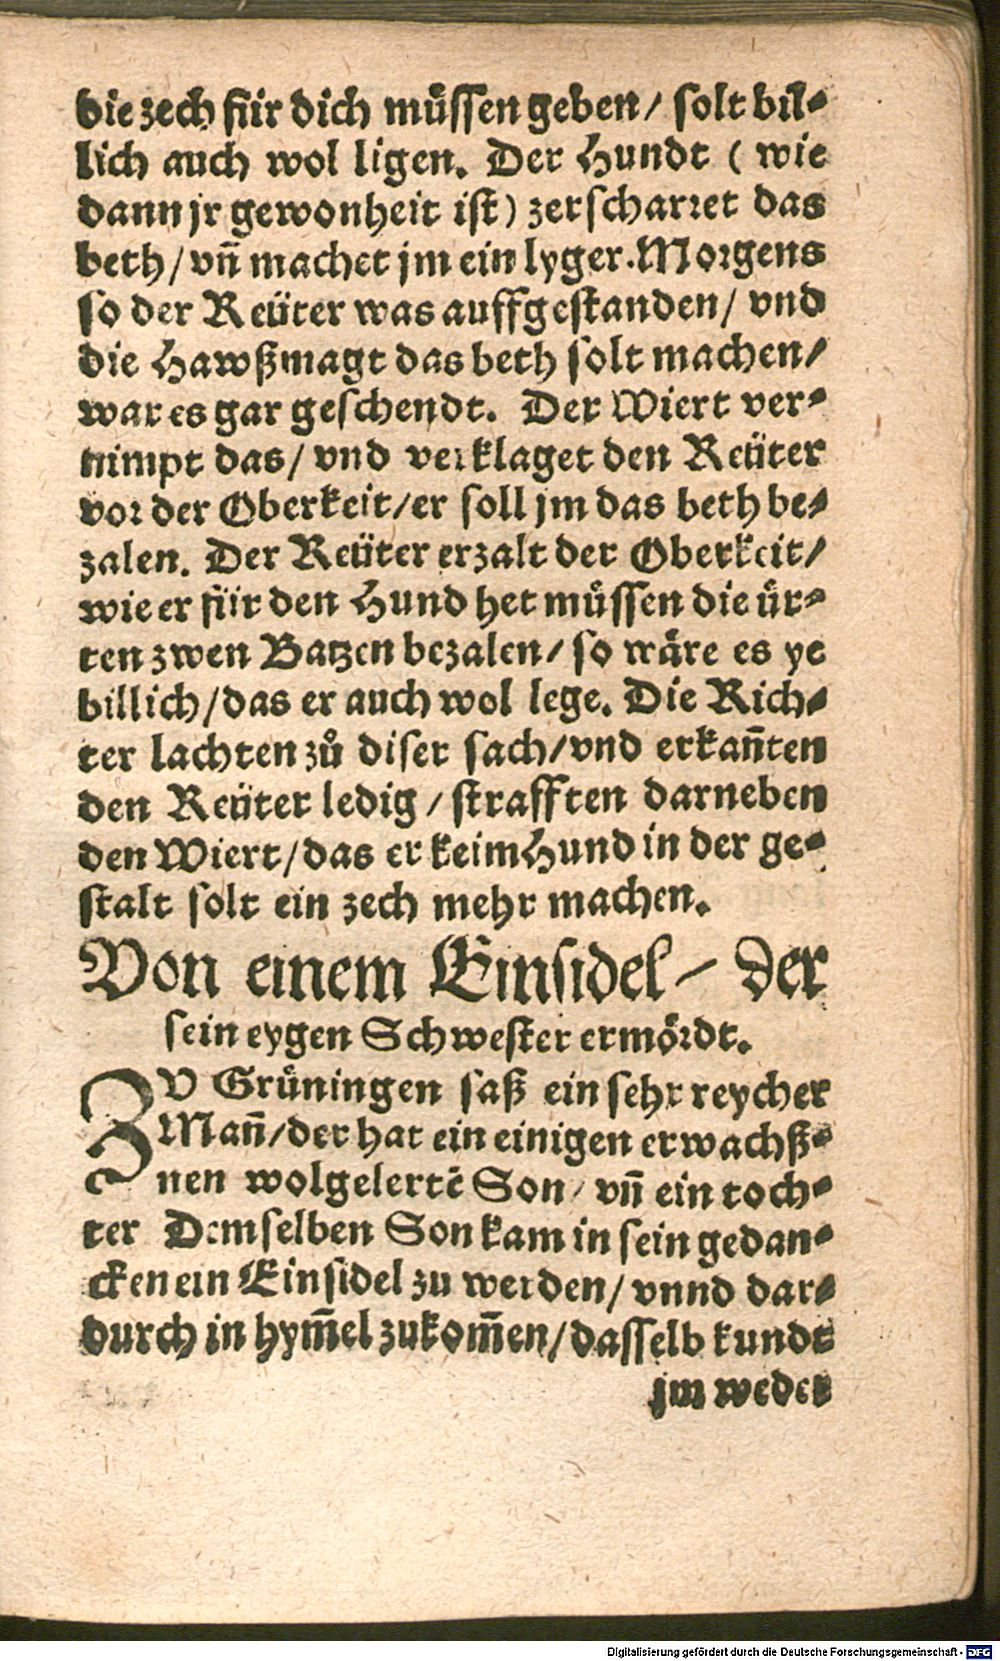 die zech für dich müssen geben / solt bil⸗
lich auch wol ligen. Der Hundt ( wie
dann jr gewonheit ist) zerscharret das
beth / vñ machet jm ein lyger. Morgens
so der Reüter was auffgestanden / vnd
die Hawßmagt das beth solt machen /
war es gar geschendt. Der Wiert ver⸗
nimpt das / vnd verklaget den Reüter
vor der Oberkeit / er soll jm das beth be⸗
zalen. Der Reüter erzalt der Oberkeit /
wie er für den Hund het müssen die ür⸗
ten zwen Batzen bezalen / so wäre es ye
billich / das er auch wol lege. Die Rich⸗
ter lachten zů diser sach / vnd erkañten
den Reüter ledig / strafften darneben
den Wiert / das er keim Hund in der ge⸗
stalt solt ein zech mehr machen.
Von einem Einsidel / der
sein eygen Schwester ermördt.
ZV Grüningen saß ein sehr reycher
Mañ / der hat ein einigen erwachß⸗
nen wolgelertē Son / vñ ein toch⸗
ter Demselben Son kam in sein gedan⸗
cken ein Einsidel zu werden / vnnd dar⸗
durch in hym̃el zukom̃en / dasselb kundt
jm weder
Digitalisierung gefördert durch die Deutsche Forschungsgemeinschaft - DFG